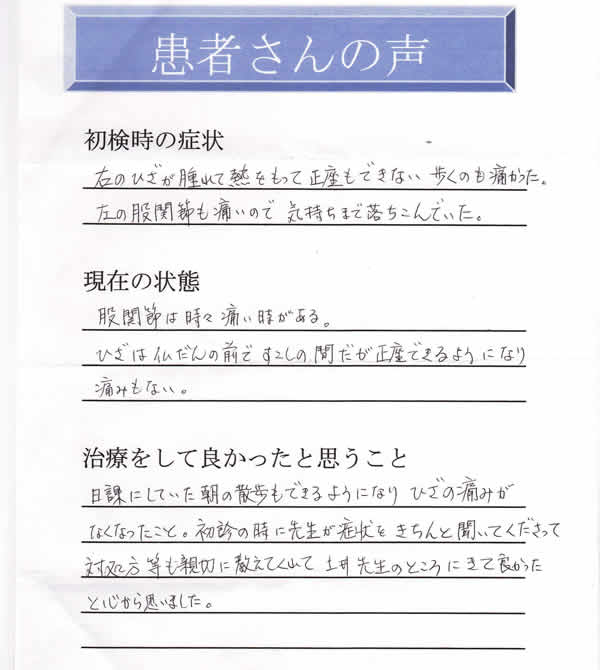 患者さんの声
初検時の症状
右のひざが腫れて熱をもって正座もできない 歩くのも痛かった。
左の股関節も痛いので 気持ちまで落ちこんでいた。
現在の状態
股関節は時々痛い時がある。
ひざは仏だんの前ですこしの間だが正座できるようになり
痛みもない。
治療をして良かったと思うこと
日課にしていた朝の散歩もできるようになり ひざの痛みが
なくなったこと。初診の時に先生が症状をきちんと聞いてくださって
対処方等も親切に教えてくれて 土井先生のところにきて良かった
と心から思いました。